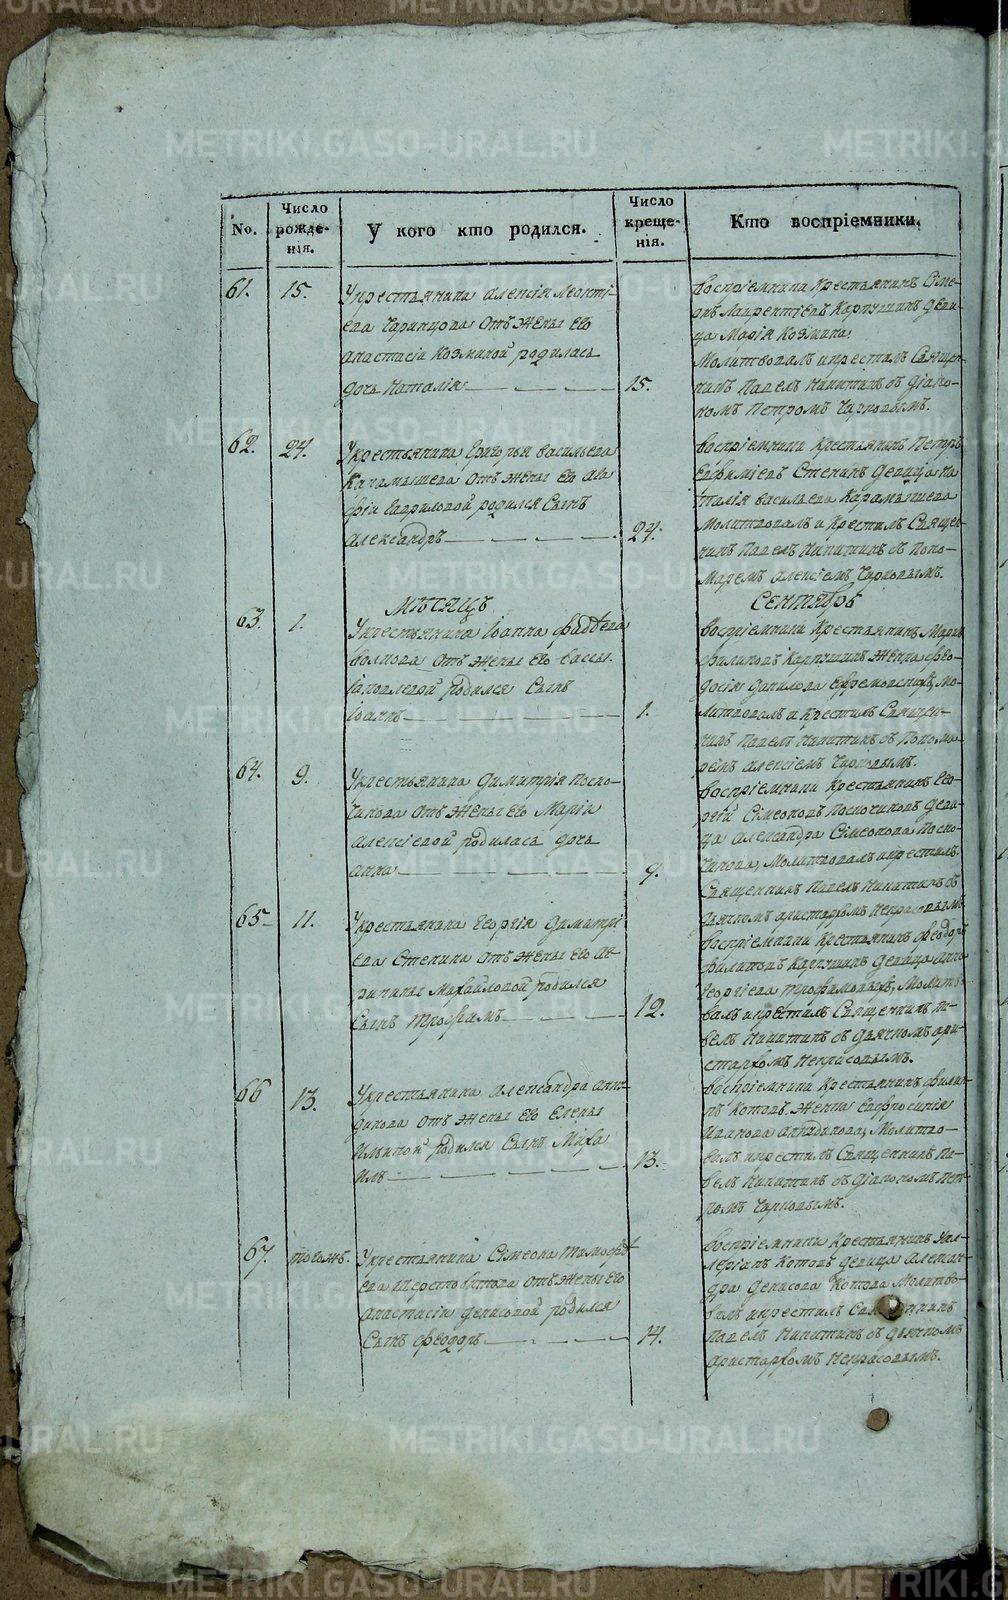 No.
Число рожде-нія.
У кого кто родился.
Число креще-нія.
Кто воспріемники.
61. 15.
Укрестьянина Алексія Леонті-
ева Чарикцова Отъ Жены Его
Анастасіи Козминой родилась
дочь Наталія
15.
Воспріемники Крестьянинъ Сіме-
онъ Лаврентіевъ Карпушинъ деви-
ца Марія Козмина
Молитвовалъ икрестилъ Священ-
никъ Павелъ Никитинъ съ діако-
номъ Петромъ Чарковымъ.
62. 24.
Укрестьянина Григорья Васильева
Карамышева Отъ Жены Его Ага
фіи Гавриловой родился Сынъ
Александръ
24.
Воспріемники Крестьянинъ Петръ
Евфиміевъ Степинъ девица На
талія Васильева Карамышева
Молитвовалъ и Крестилъ Священ-
никъ Павелъ Никитинъ съ Поно-
Маремъ Алексіемъ Чарковымъ.
Мѣсяцъ Сентябрь
63. 1.
Укрестьянина Іоанна Фадѣева
Волкова Отъ Жены Его Вассы
родился Сынъ
Іоаннъ
1.
Воспріемники Крестьянинъ
Филиповъ Карпушинъ Женка Ѳео-
досія Данилова Мо-
литвовалъ и Крестилъ Священ-
никъ Павелъ Никитинъ съ Понома-
ремъ Алексіемъ Чарковымъ.
64. 9.
Укрестьянина Димитрія Поско-
чинова Отъ Жены Его Маріи
Алексіевой родилась дочь
Анна
9.
Воспріемники Крестьянинъ Гео-
ргій Сімеоновъ Поскочиновъ деви-
ца Александра Сімеонова Поско-
чинова, Молитвовалъ икрестилъ
Священникъ Павелъ Никитинъ съ
дьячкомъ Аристархомъ Некрасовымъ
65 11.
Укрестьянина Георгія Димитрі
ева Степина Отъ Жены Его Ак-
рипины Михайловой родился
Сынъ Трофимъ
12.
Воспріемники Крестьянинъ Ѳеодоръ
Филиповъ Карпушинъ девица Анна
Георгіева Молитво-
валъ икрестилъ Священникъ Па-
велъ Никитинъ съ дьячкомъ Ари-
стархомъ Некрасовымъ.
66 13.
Укрестьянина Александра
Отъ Жены Его Елены
Ильиной родился Сынъ Миха
илъ
13.
Воспріемники Крестьянинъ Филип-
пъ Котовъ Женка Евфросинія
Иванова Молитво-
валъ икрестилъ Священникъ Па-
велъ Никитинъ съ діакономъ Пет-
ромъ Чарковымъ.
67. тогожъ.
Укрестьянина Сімеона Тимофѣ
ева Шерстобитова Отъ Жены Его
Анастасіи Денисовой родился
Сынъ Ѳеодоръ
14.
Воспріемники Крестьянинъ Вал-
леріанъ Котовъ девица Алексан-
дра Денисова Котова Молитво-
валъ икрестилъ Священникъ
Павелъ Никитинъ съ дьячкомъ
Аристархомъ Некрасовымъ.
METRIKI.GASO-URAL.RU